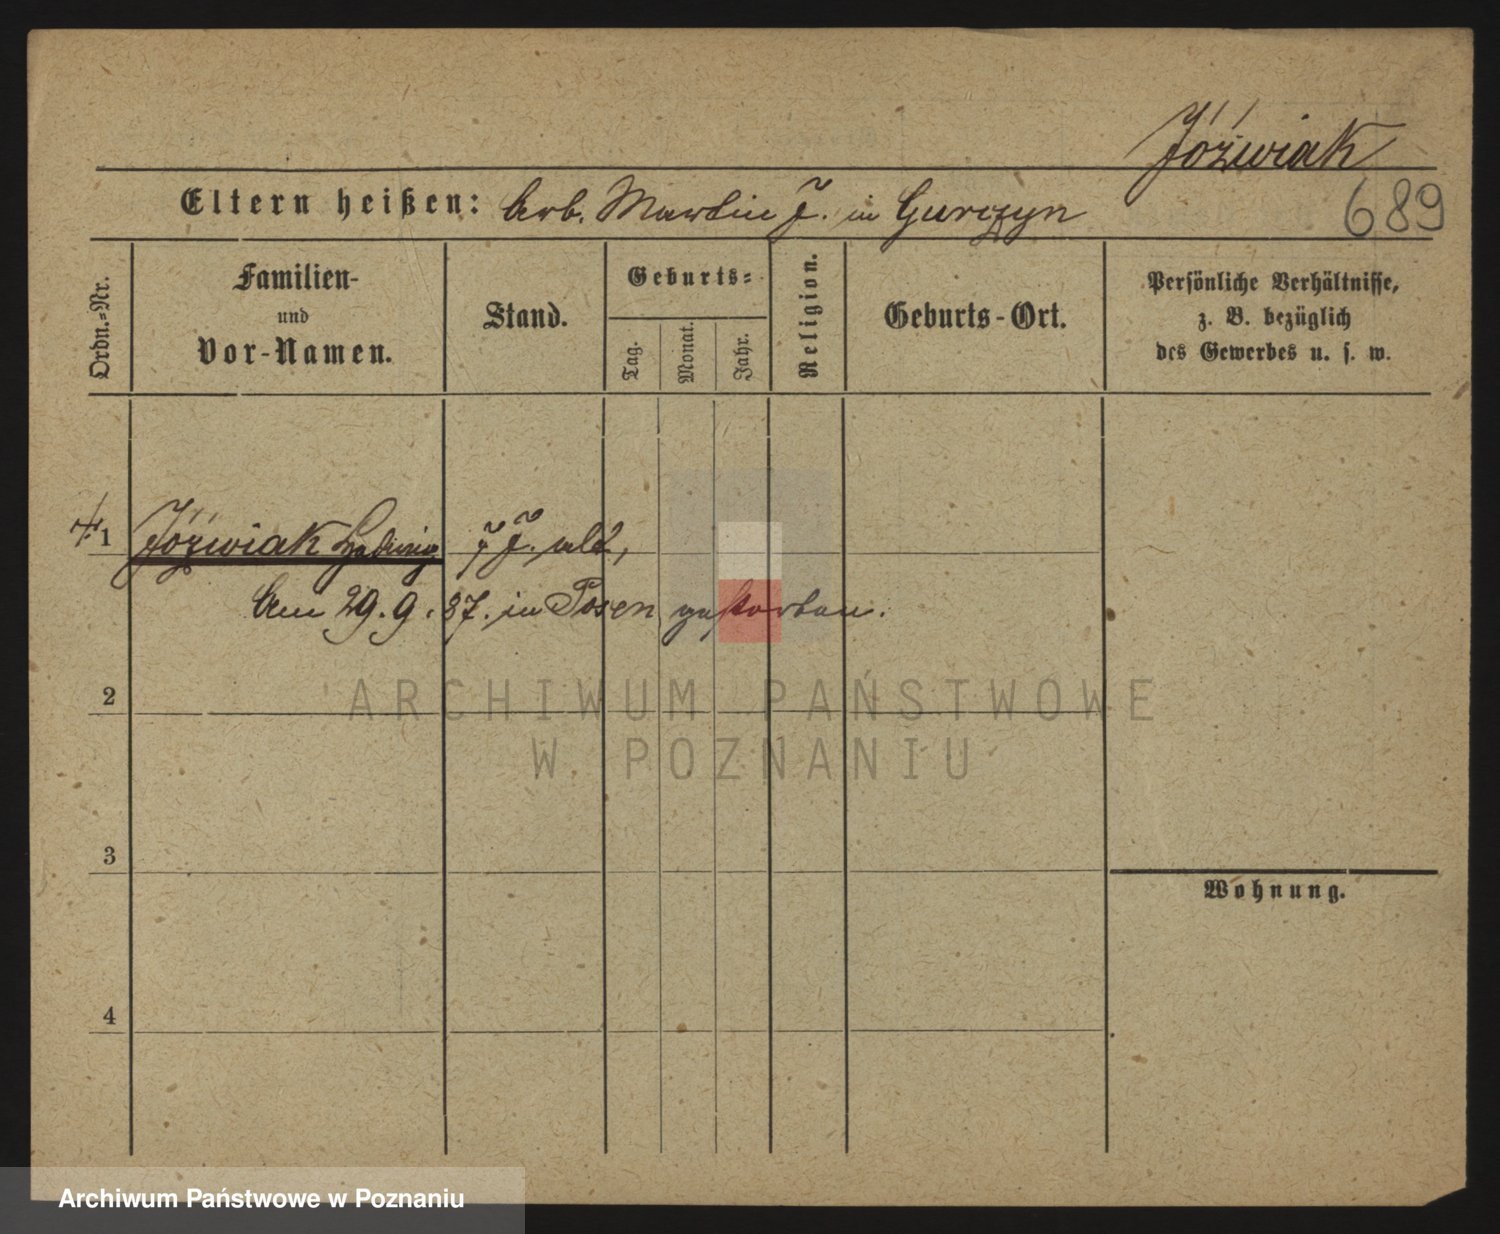 Jóźwiak
689
Eltern heißen: Arb. Martin J. in Gurczyn
Ordn.-Nr.
Familien- und Vor-Namen.
Stand.
Geburts-
Tag.
Monat.
Jahr.
Religion.
Geburts-Ort.
Persönliche Verhältnisse,
z. B. bezüglich
des Gewerbes u. s. w.
1 Jóźwiak Hedwig 7 J. alt,
Am 29. 9. 87. in Posen gestorben.
2
ARCHIWUM PAŃSTWOWE
W POZNANIU
3
Wohnung.
4
Archiwum Państwowe w Poznaniu